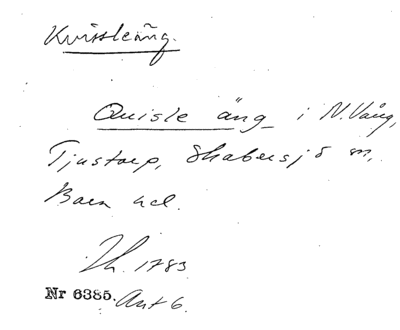 Kvissleäng.
Quisle äng i N. Vång,
Tjustorp, Skabersjö sn,
Bara hd.
Lh. 1783
Nr 6385. Akt 6.